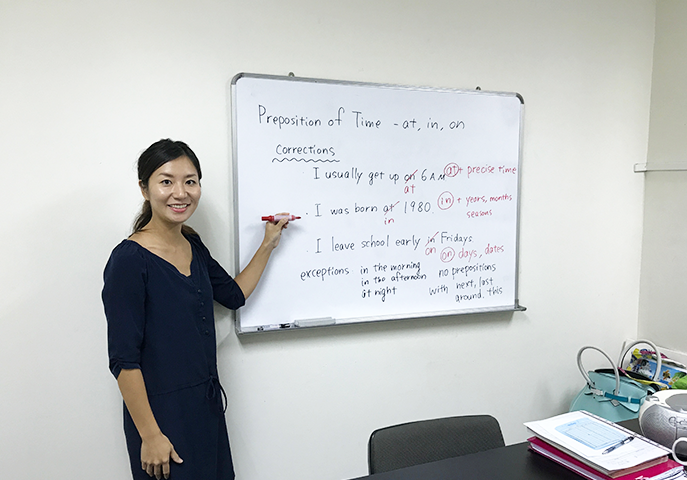 Preposition of Time - at, in, on
Corrections
. I usually get up on 6 AM at + precise time
at
. I was born at 1980. in + years, months
in seasons
. I leave school early in Fridays.
on on days, dates
exceptions in the morning no prepositions
in the afternoon with next, last
at night around. this